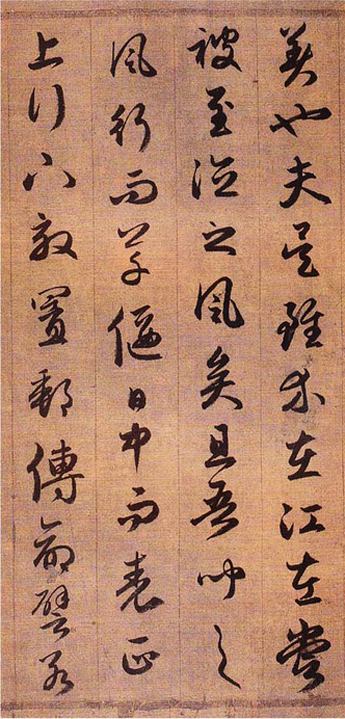 美也夫吳雖在江左嘗
被至德之風矣且吾聞之
風行而草偃日中而表正
上行下效置郵傳命譬若